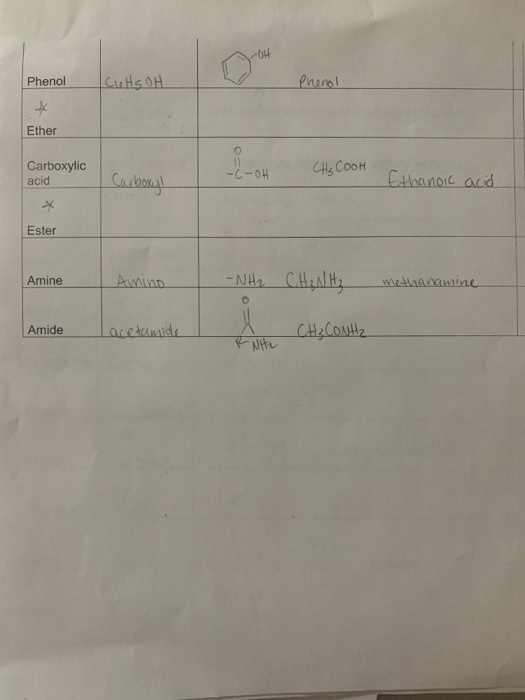 OH
Phenol C6H5OH Phenol
Ether
O
Carboxylic acid Carboxyl -C-OH CH3COOH Ethanoic acid
Ester
Amine Amino -NH2 CH3NH2 methanamine
O
Amide acetamide CH3CONH2
R NH2